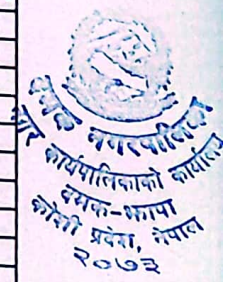 दमक नगरपालिका
नगर कार्यपालिकाको कार्यालय
दमक-झापा
कोशी प्रदेश, नेपाल
२०७३